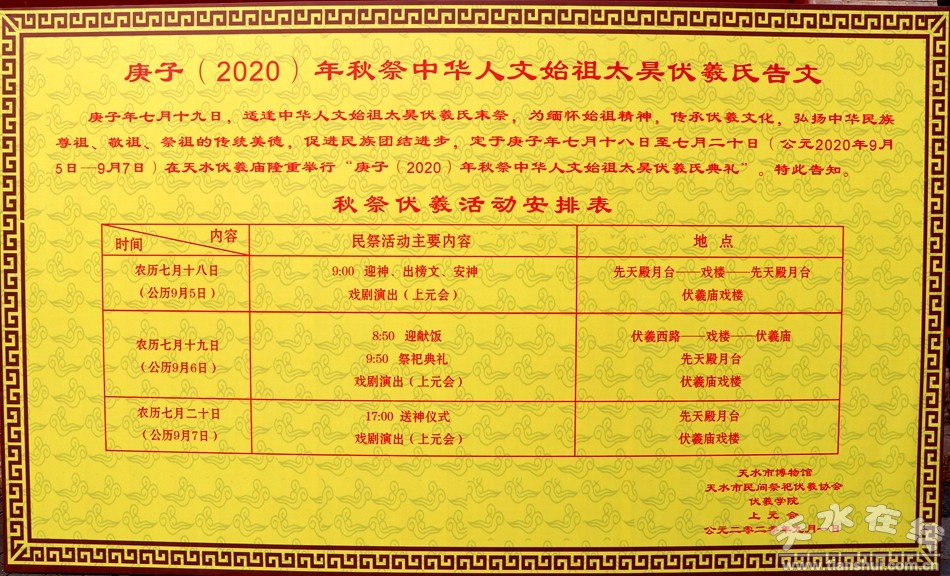 庚子（2020）年秋祭中华人文始祖太昊伏羲氏告文
庚子年七月十九日，适逢中华人文始祖太昊伏羲氏末祭，为缅怀始祖精神，传承伏羲文化，弘扬中华民族
尊祖、敬祖、祭祖的传统美德，促进民族团结进步，定于庚子年七月十八日至七月二十日（公元2020年9月
5日—9月7日）在天水伏羲庙隆重举行“庚子（2020）年秋祭中华人文始祖太昊伏羲氏典礼”。特此告知。
秋祭伏羲活动安排表
时间 内容 民祭活动主要内容 地 点
农历七月十八日
（公历9月5日）
9:00 迎神、出榜文、安神
戏剧演出（上元会）
先天殿月台——戏楼——先天殿月台
伏羲庙戏楼
农历七月十九日
（公历9月6日）
8:50 迎献饭
9:50 祭祀典礼
戏剧演出（上元会）
伏羲西路——戏楼——伏羲庙
先天殿月台
伏羲庙戏楼
农历七月二十日
（公历9月7日）
17:00 送神仪式
戏剧演出（上元会）
先天殿月台
伏羲庙戏楼
天水市博物馆
天水市民间祭祀伏羲协会
伏羲学院
上元会
公元二零二零年 月一日
天水在线
www.tianshui.com.cn